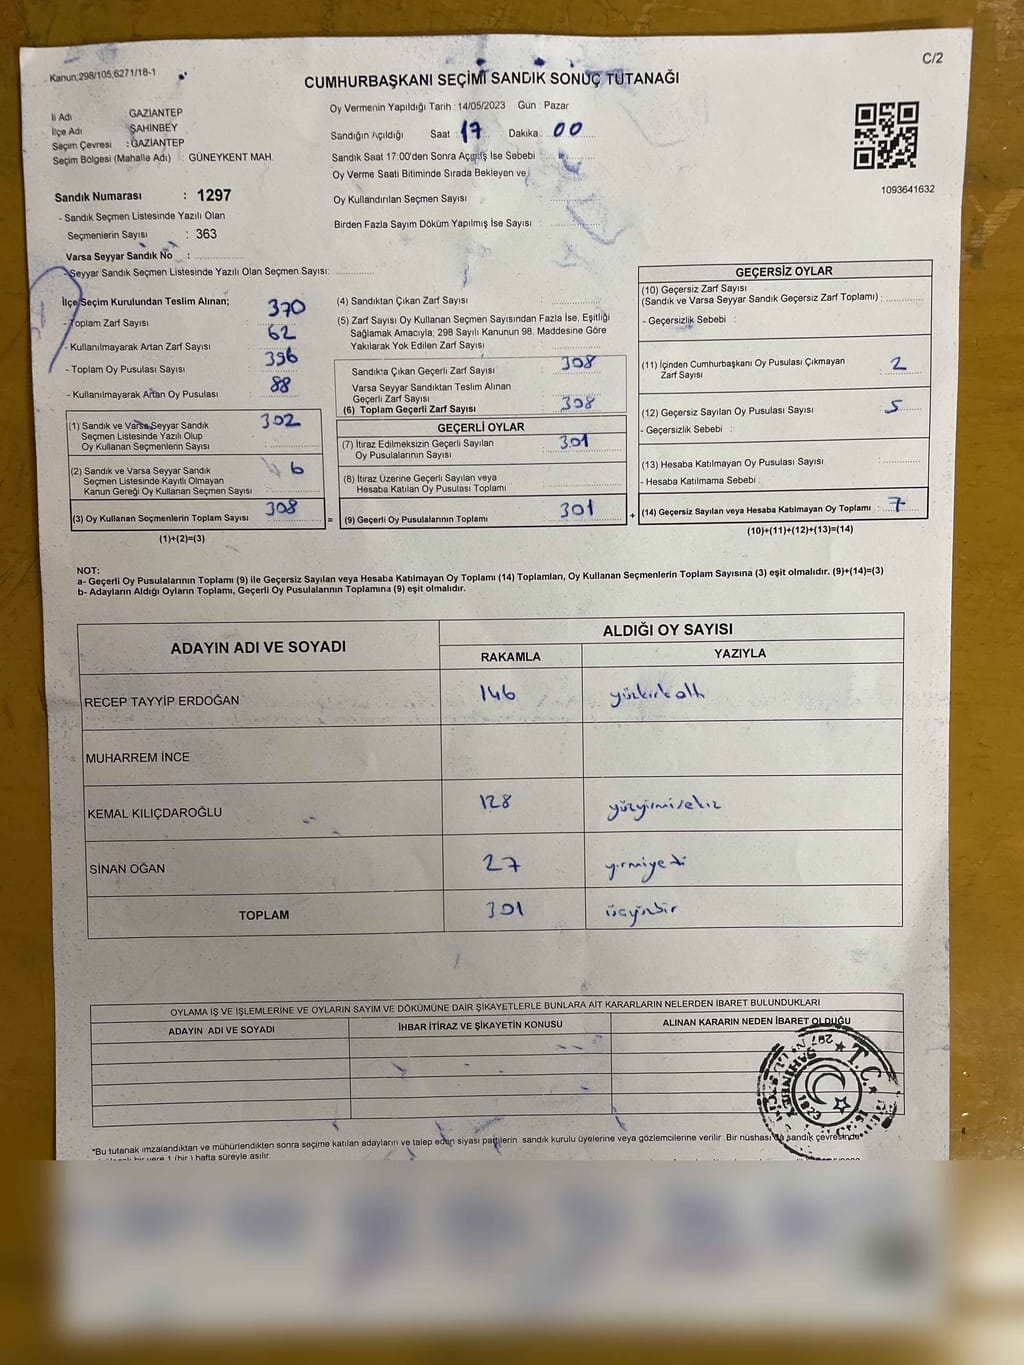 Kanun,298/105,6271/18-1
C/2
CUMHURBAŞKANI SEÇİMİ SANDIK SONUÇ TUTANAĞI
İl Adı GAZİANTEP
İlçe Adı ŞAHİNBEY
Seçim Çevresi : GAZİANTEP
Seçim Bölgesi (Mahalle Adı) : GÜNEYKENT MAH.
Oy Vermenin Yapıldığı Tarih : 14/05/2023 Gün : Pazar
Sandığın Açıldığı Saat : 17 Dakika : 00
Sandık Saat 17:00'den Sonra Açılmış İse Sebebi :
Oy Verme Saati Bitiminde Sırada Bekleyen ve
Oy Kullandırılan Seçmen Sayısı :
Birden Fazla Sayım Döküm Yapılmış İse Sayısı :
1093641632
Sandık Numarası : 1297
- Sandık Seçmen Listesinde Yazılı Olan
Seçmenlerin Sayısı : 363
Varsa Seyyar Sandık No :
- Seyyar Sandık Seçmen Listesinde Yazılı Olan Seçmen Sayısı:
İlçe Seçim Kurulundan Teslim Alınan;
- Toplam Zarf Sayısı 370
- Kullanılmayarak Artan Zarf Sayısı 62
- Toplam Oy Pusulası Sayısı 396
- Kullanılmayarak Artan Oy Pusulası 88
(1) Sandık ve Varsa Seyyar Sandık
Seçmen Listesinde Yazılı Olup
Oy Kullanan Seçmenlerin Sayısı : 302
(2) Sandık ve Varsa Seyyar Sandık
Seçmen Listesinde Kayıtlı Olmayan
Kanun Gereği Oy Kullanan Seçmen Sayısı : 6
(3) Oy Kullanan Seçmenlerin Toplam Sayısı : 308
(1)+(2)=(3)
=
(4) Sandıktan Çıkan Zarf Sayısı :
(5) Zarf Sayısı Oy Kullanan Seçmen Sayısından Fazla İse, Eşitliği
Sağlamak Amacıyla; 298 Sayılı Kanunun 98. Maddesine Göre
Yakılarak Yok Edilen Zarf Sayısı :
Sandıkta Çıkan Geçerli Zarf Sayısı : 308
Varsa Seyyar Sandıktan Teslim Alınan
Geçerli Zarf Sayısı :
(6) Toplam Geçerli Zarf Sayısı : 308
GEÇERLİ OYLAR
(7) İtiraz Edilmeksizin Geçerli Sayılan
Oy Pusulalarının Sayısı : 301
(8) İtiraz Üzerine Geçerli Sayılan veya
Hesaba Katılan Oy Pusulası Toplamı :
(9) Geçerli Oy Pusulalarının Toplamı : 301
+
GEÇERSİZ OYLAR
(10) Geçersiz Zarf Sayısı
(Sandık ve Varsa Seyyar Sandık Geçersiz Zarf Toplamı) :
- Geçersizlik Sebebi :
(11) İçinden Cumhurbaşkanı Oy Pusulası Çıkmayan
Zarf Sayısı : 2
(12) Geçersiz Sayılan Oy Pusulası Sayısı : 5
- Geçersizlik Sebebi :
(13) Hesaba Katılmayan Oy Pusulası Sayısı :
- Hesaba Katılmama Sebebi :
(14) Geçersiz Sayılan veya Hesaba Katılmayan Oy Toplamı : 7
(10)+(11)+(12)+(13)=(14)
NOT:
a- Geçerli Oy Pusulalarının Toplamı (9) ile Geçersiz Sayılan veya Hesaba Katılmayan Oy Toplamı (14) Toplamları, Oy Kullanan Seçmenlerin Toplam Sayısına (3) eşit olmalıdır. (9)+(14)=(3)
b- Adayların Aldığı Oyların Toplamı, Geçerli Oy Pusulalarının Toplamına (9) eşit olmalıdır.
ADAYIN ADI VE SOYADI ALDIĞI OY SAYISI
RAKAMLA YAZIYLA
RECEP TAYYİP ERDOĞAN 146 yüzkırkaltı
MUHARREM İNCE
KEMAL KILIÇDAROĞLU 128 yüzyirmisekiz
SİNAN OĞAN 27 yirmiyedi
TOPLAM 301 üçyüzbir
OYLAMA İŞ VE İŞLEMLERİNE VE OYLARIN SAYIM VE DÖKÜMÜNE DAİR ŞİKAYETLERLE BUNLARA AİT KARARLARIN NELERDEN İBARET BULUNDUKLARI
ADAYIN ADI VE SOYADI İHBAR İTİRAZ VE ŞİKAYETİN KONUSU ALINAN KARARIN NEDEN İBARET OLDUĞU
T.C.
*Bu tutanak imzalandıktan ve mühürlendikten sonra seçime katılan adayların ve talep eden siyasi partilerin sandık kurulu üyelerine veya gözlemcilerine verilir .Bir nüshası da sandık çevresinde
bir yere 1 (bir ) hafta süreyle asılır.